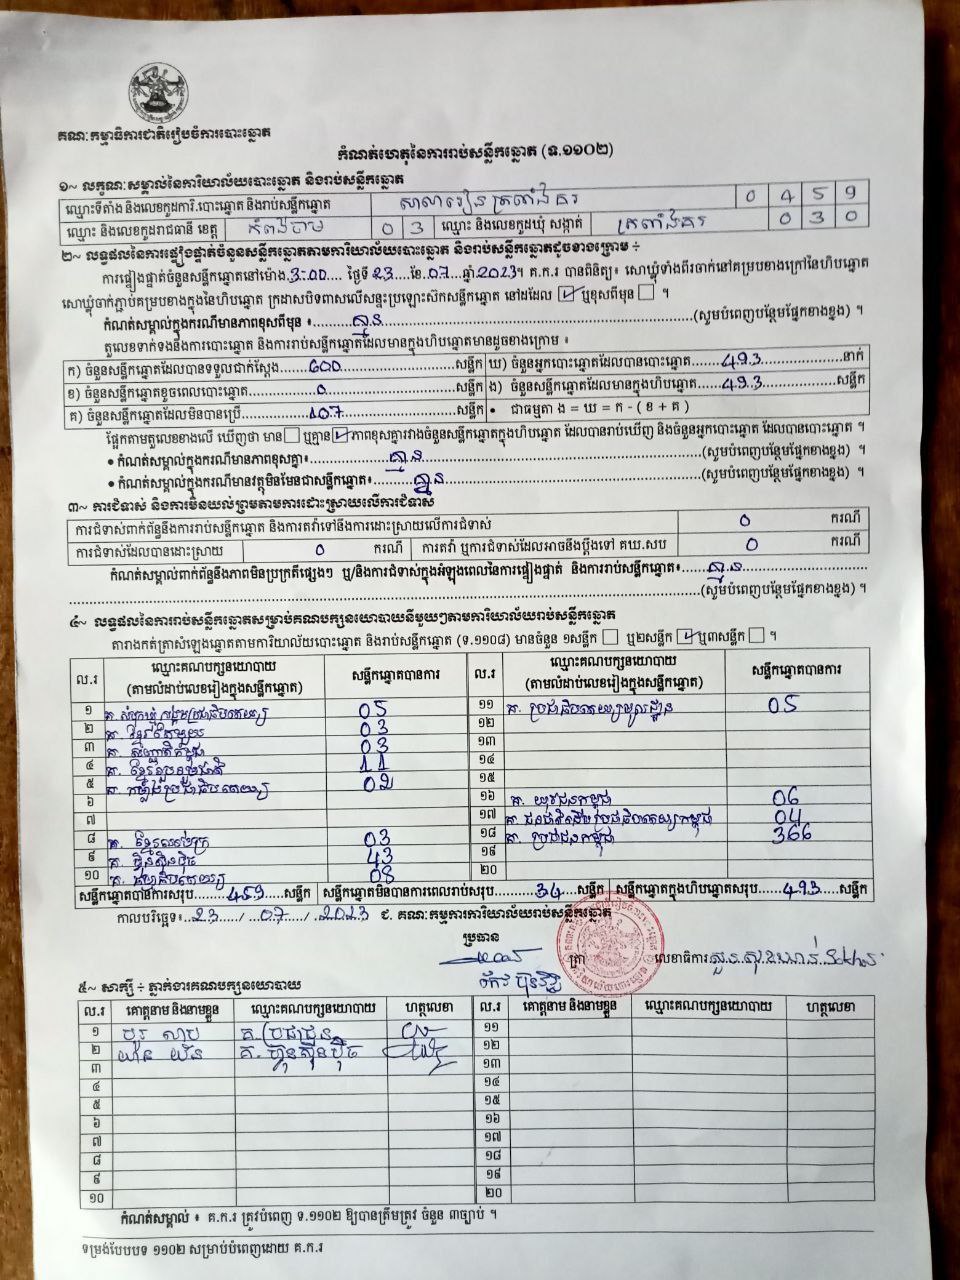 គណៈកម្មាធិការជាតិរៀបចំការបោះឆ្នោត
កំណត់ហេតុនៃការរាប់សន្លឹកឆ្នោត (ទ.១១០២)
១~ លក្ខណៈសម្គាល់នៃការិយាល័យបោះឆ្នោត និងរាប់សន្លឹកឆ្នោត
ឈ្មោះទីតាំង និងលេខកូដការិ.បោះឆ្នោត និងរាប់សន្លឹកឆ្នោត សាលារៀនត្រពាំងគរ 0 4 5 9
ឈ្មោះ និងលេខកូដរាជធានី ខេត្ត កំពង់ចាម 0 3 ឈ្មោះ និងលេខកូដឃុំ សង្កាត់ ត្រពាំងគរ 0 3 0
២~ លទ្ធផលនៃការផ្ទៀងផ្ទាត់ចំនួនសន្លឹកឆ្នោតតាមការិយាល័យបោះឆ្នោត និងរាប់សន្លឹកឆ្នោតដូចខាងក្រោម ៖
ការផ្ទៀងផ្ទាត់ចំនួនសន្លឹកឆ្នោតនៅម៉ោង 3:00 ថ្ងៃទី 23 ខែ 07 ឆ្នាំ 2023។ គ.ក.រ បានពិនិត្យ៖ សោឃ្លុំទាំងពីរចាក់នៅគម្របខាងក្រៅនៃហិបឆ្នោត
សោឃ្លុំចាក់ភ្ជាប់គម្របខាងក្នុងនៃហិបឆ្នោត ក្រដាសបិទពាសលើសន្ទះប្រឡោះស៊កសន្លឹកឆ្នោត នៅដដែល ☑ ឬខុសពីមុន ☐ ។
កំណត់សម្គាល់ក្នុងករណីមានភាពខុសពីមុន ៖ គ្មាន (សូមបំពេញបន្ថែមផ្នែកខាងខ្នង) ។
តួលេខទាក់ទងនឹងការបោះឆ្នោត និងការរាប់សន្លឹកឆ្នោតដែលមានក្នុងហិបឆ្នោតមានដូចខាងក្រោម ៖
ក) ចំនួនសន្លឹកឆ្នោតដែលបានទទួលជាក់ស្ដែង 600 សន្លឹក ឃ) ចំនួនអ្នកបោះឆ្នោតដែលបានបោះឆ្នោត 493 នាក់
ខ) ចំនួនសន្លឹកឆ្នោតខូចពេលបោះឆ្នោត 0 សន្លឹក ង) ចំនួនសន្លឹកឆ្នោតដែលមានក្នុងហិបឆ្នោត 493 សន្លឹក
គ) ចំនួនសន្លឹកឆ្នោតដែលមិនបានប្រើ 107 សន្លឹក • ជាធម្មតា ង = ឃ = ក - ( ខ + គ )
ផ្អែកតាមតួលេខខាងលើ ឃើញថា មាន ☐ ឬគ្មាន ☑ ភាពខុសគ្នារវាងចំនួនសន្លឹកឆ្នោតក្នុងហិបឆ្នោត ដែលបានរាប់ឃើញ និងចំនួនអ្នកបោះឆ្នោត ដែលបានបោះឆ្នោត ។
• កំណត់សម្គាល់ក្នុងករណីមានភាពខុសគ្នា៖ គ្មាន (សូមបំពេញបន្ថែមផ្នែកខាងខ្នង) ។
• កំណត់សម្គាល់ក្នុងករណីមានវត្ថុមិនមែនជាសន្លឹកឆ្នោត៖ គ្មាន (សូមបំពេញបន្ថែមផ្នែកខាងខ្នង) ។
៣~ ការជំទាស់ និងការមិនយល់ព្រមតាមការដោះស្រាយលើការជំទាស់
ការជំទាស់ពាក់ព័ន្ធនឹងការរាប់សន្លឹកឆ្នោត និងការតវ៉ាទៅនឹងការដោះស្រាយលើការជំទាស់ 0 ករណី
ការជំទាស់ដែលបានដោះស្រាយ 0 ករណី ការតវ៉ា ឬការជំទាស់ដែលអាចនឹងប្ដឹងទៅ គឃ.សប 0 ករណី
កំណត់សម្គាល់ពាក់ព័ន្ធនឹងភាពមិនប្រក្រតីផ្សេងៗ ឬ/និងការជំទាស់ក្នុងអំឡុងពេលនៃការផ្ទៀងផ្ទាត់ និងការរាប់សន្លឹកឆ្នោត៖ គ្មាន
(សូមបំពេញបន្ថែមផ្នែកខាងខ្នង) ។
៤~ លទ្ធផលនៃការរាប់សន្លឹកឆ្នោតសម្រាប់គណបក្សនយោបាយនីមួយៗតាមការិយាល័យរាប់សន្លឹកឆ្នោត
តារាងកត់ត្រាសំឡេងឆ្នោតតាមការិយាល័យបោះឆ្នោត និងរាប់សន្លឹកឆ្នោត (ទ.១១០៨) មានចំនួន ១សន្លឹក ☐ ឬ២សន្លឹក ☑ ឬ៣សន្លឹក ☐ ។
ល.រ ឈ្មោះគណបក្សនយោបាយ (តាមលំដាប់លេខរៀងក្នុងសន្លឹកឆ្នោត) សន្លឹកឆ្នោតបានការ ល.រ ឈ្មោះគណបក្សនយោបាយ (តាមលំដាប់លេខរៀងក្នុងសន្លឹកឆ្នោត) សន្លឹកឆ្នោតបានការ
១ គ. សំបុកឃ្មុំសង្គមប្រជាធិបតេយ្យ 05 ១១ គ. ប្រជាធិបតេយ្យមូលដ្ឋាន 05
២ គ. ខ្មែរតែមួយ 03 ១២
៣ គ. សញ្ជាតិកម្ពុជា 03 ១៣
៤ គ. ខ្មែររួបរួមជាតិ 11 ១៤
៥ គ. កម្លាំងប្រជាធិបតេយ្យ 02 ១៥
៦ ១៦ គ. យុវជនកម្ពុជា 06
៧ ១៧ គ. ជនជាតិដើមប្រជាធិបតេយ្យកម្ពុជា 04
៨ គ. ខ្មែរឈប់ក្រ 03 ១៨ គ. ប្រជាជនកម្ពុជា 366
៩ គ. ហ្វ៊ុនស៊ិនប៉ិច 43 ១៩
១០ គ. ធម្មាធិបតេយ្យ 08 ២០
សន្លឹកឆ្នោតបានការសរុប 459 សន្លឹក សន្លឹកឆ្នោតមិនបានការពេលរាប់សរុប 34 សន្លឹក សន្លឹកឆ្នោតក្នុងហិបឆ្នោតសរុប 493 សន្លឹក
កាលបរិច្ឆេទ៖ 23 / 07 / 2023 ជ. គណៈកម្មការការិយាល័យរាប់សន្លឹកឆ្នោត
ប្រធាន
ត្រា លេខាធិការ
៥~ សាក្សី ៖ ភ្នាក់ងារគណបក្សនយោបាយ
ល.រ គោត្តនាម និងនាមខ្លួន ឈ្មោះគណបក្សនយោបាយ ហត្ថលេខា ល.រ គោត្តនាម និងនាមខ្លួន ឈ្មោះគណបក្សនយោបាយ ហត្ថលេខា
១ គ. ប្រជាជន ១១
២ យ៉ន យ៉ន គ. ហ៊្វុនស៊ិនប៉ិច ១២
៣ ១៣
៤ ១៤
៥ ១៥
៦ ១៦
៧ ១៧
៨ ១៨
៩ ១៩
១០ ២០
កំណត់សម្គាល់ ៖ គ.ក.រ ត្រូវបំពេញ ទ.១១០២ ឱ្យបានត្រឹមត្រូវ ចំនួន ៣ច្បាប់ ។
ទម្រង់បែបបទ ១១០២ សម្រាប់បំពេញដោយ គ.ក.រ